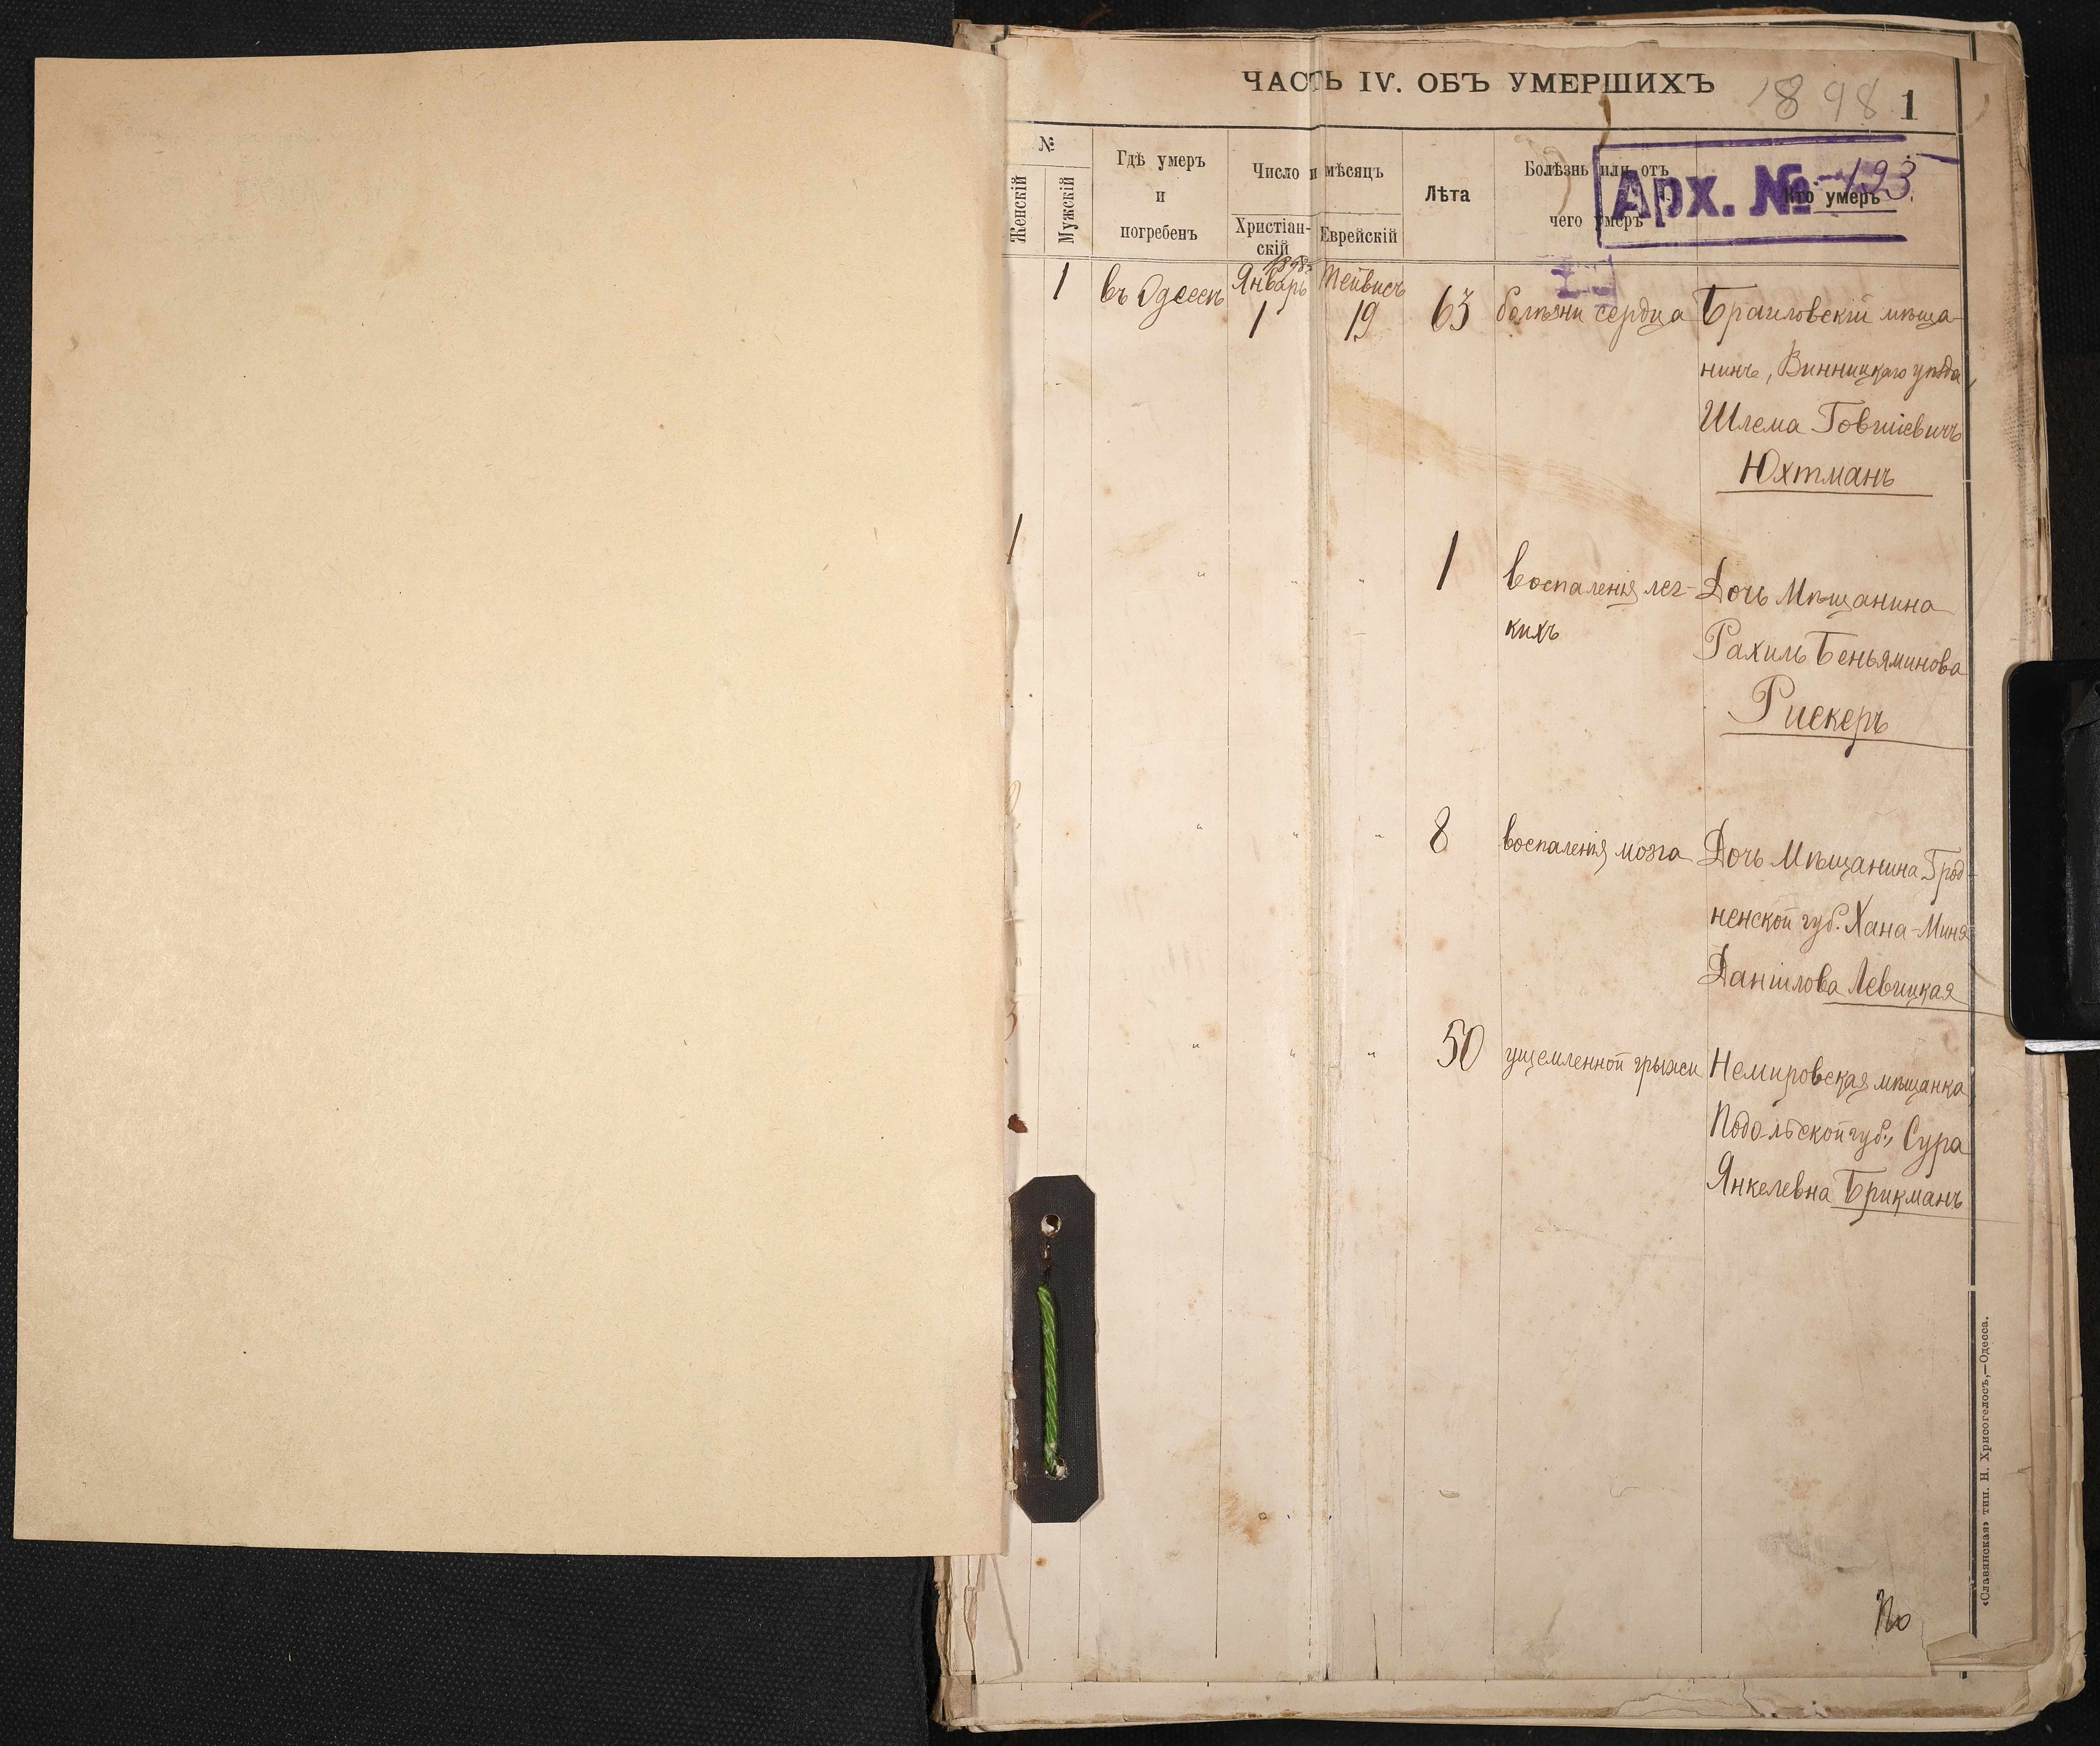 ЧАСТЬ IV. ОБЪ УМЕРШИХЪ
1898
1
№
Женскій
Мужскій
Гдѣ умеръ
и
погребенъ
Число и мѣсяцъ
Христіан-
скій
Еврейскій
Лѣта
Болѣзнь или отъ
чего умеръ
Кто умеръ
Арх. № 193
1 въ Одессѣ Январь 1898г. Тейвисъ
1 19 63 болѣзни сердца Браиловскій мѣща-
нинъ, Винницкаго уѣзда,
Шлема Говшіевичъ
Юхтманъ
1 " " " 1 воспаленія лег-
кихъ
Дочь Мѣщанина
Рахиль Беньяминова
Рискеръ
" " " 8 воспаленія мозга Дочь Мѣщанина Грод-
ненской губ. Хана-Миня
Даніилова Левицкая
3 " " " 50 ущемленной грыжи Немировская мѣщанка
Подольской губ., Сура
Янкелевна Брикманъ
По
«Славянская» тип. Н. Хрисогелосъ,—Одесса.